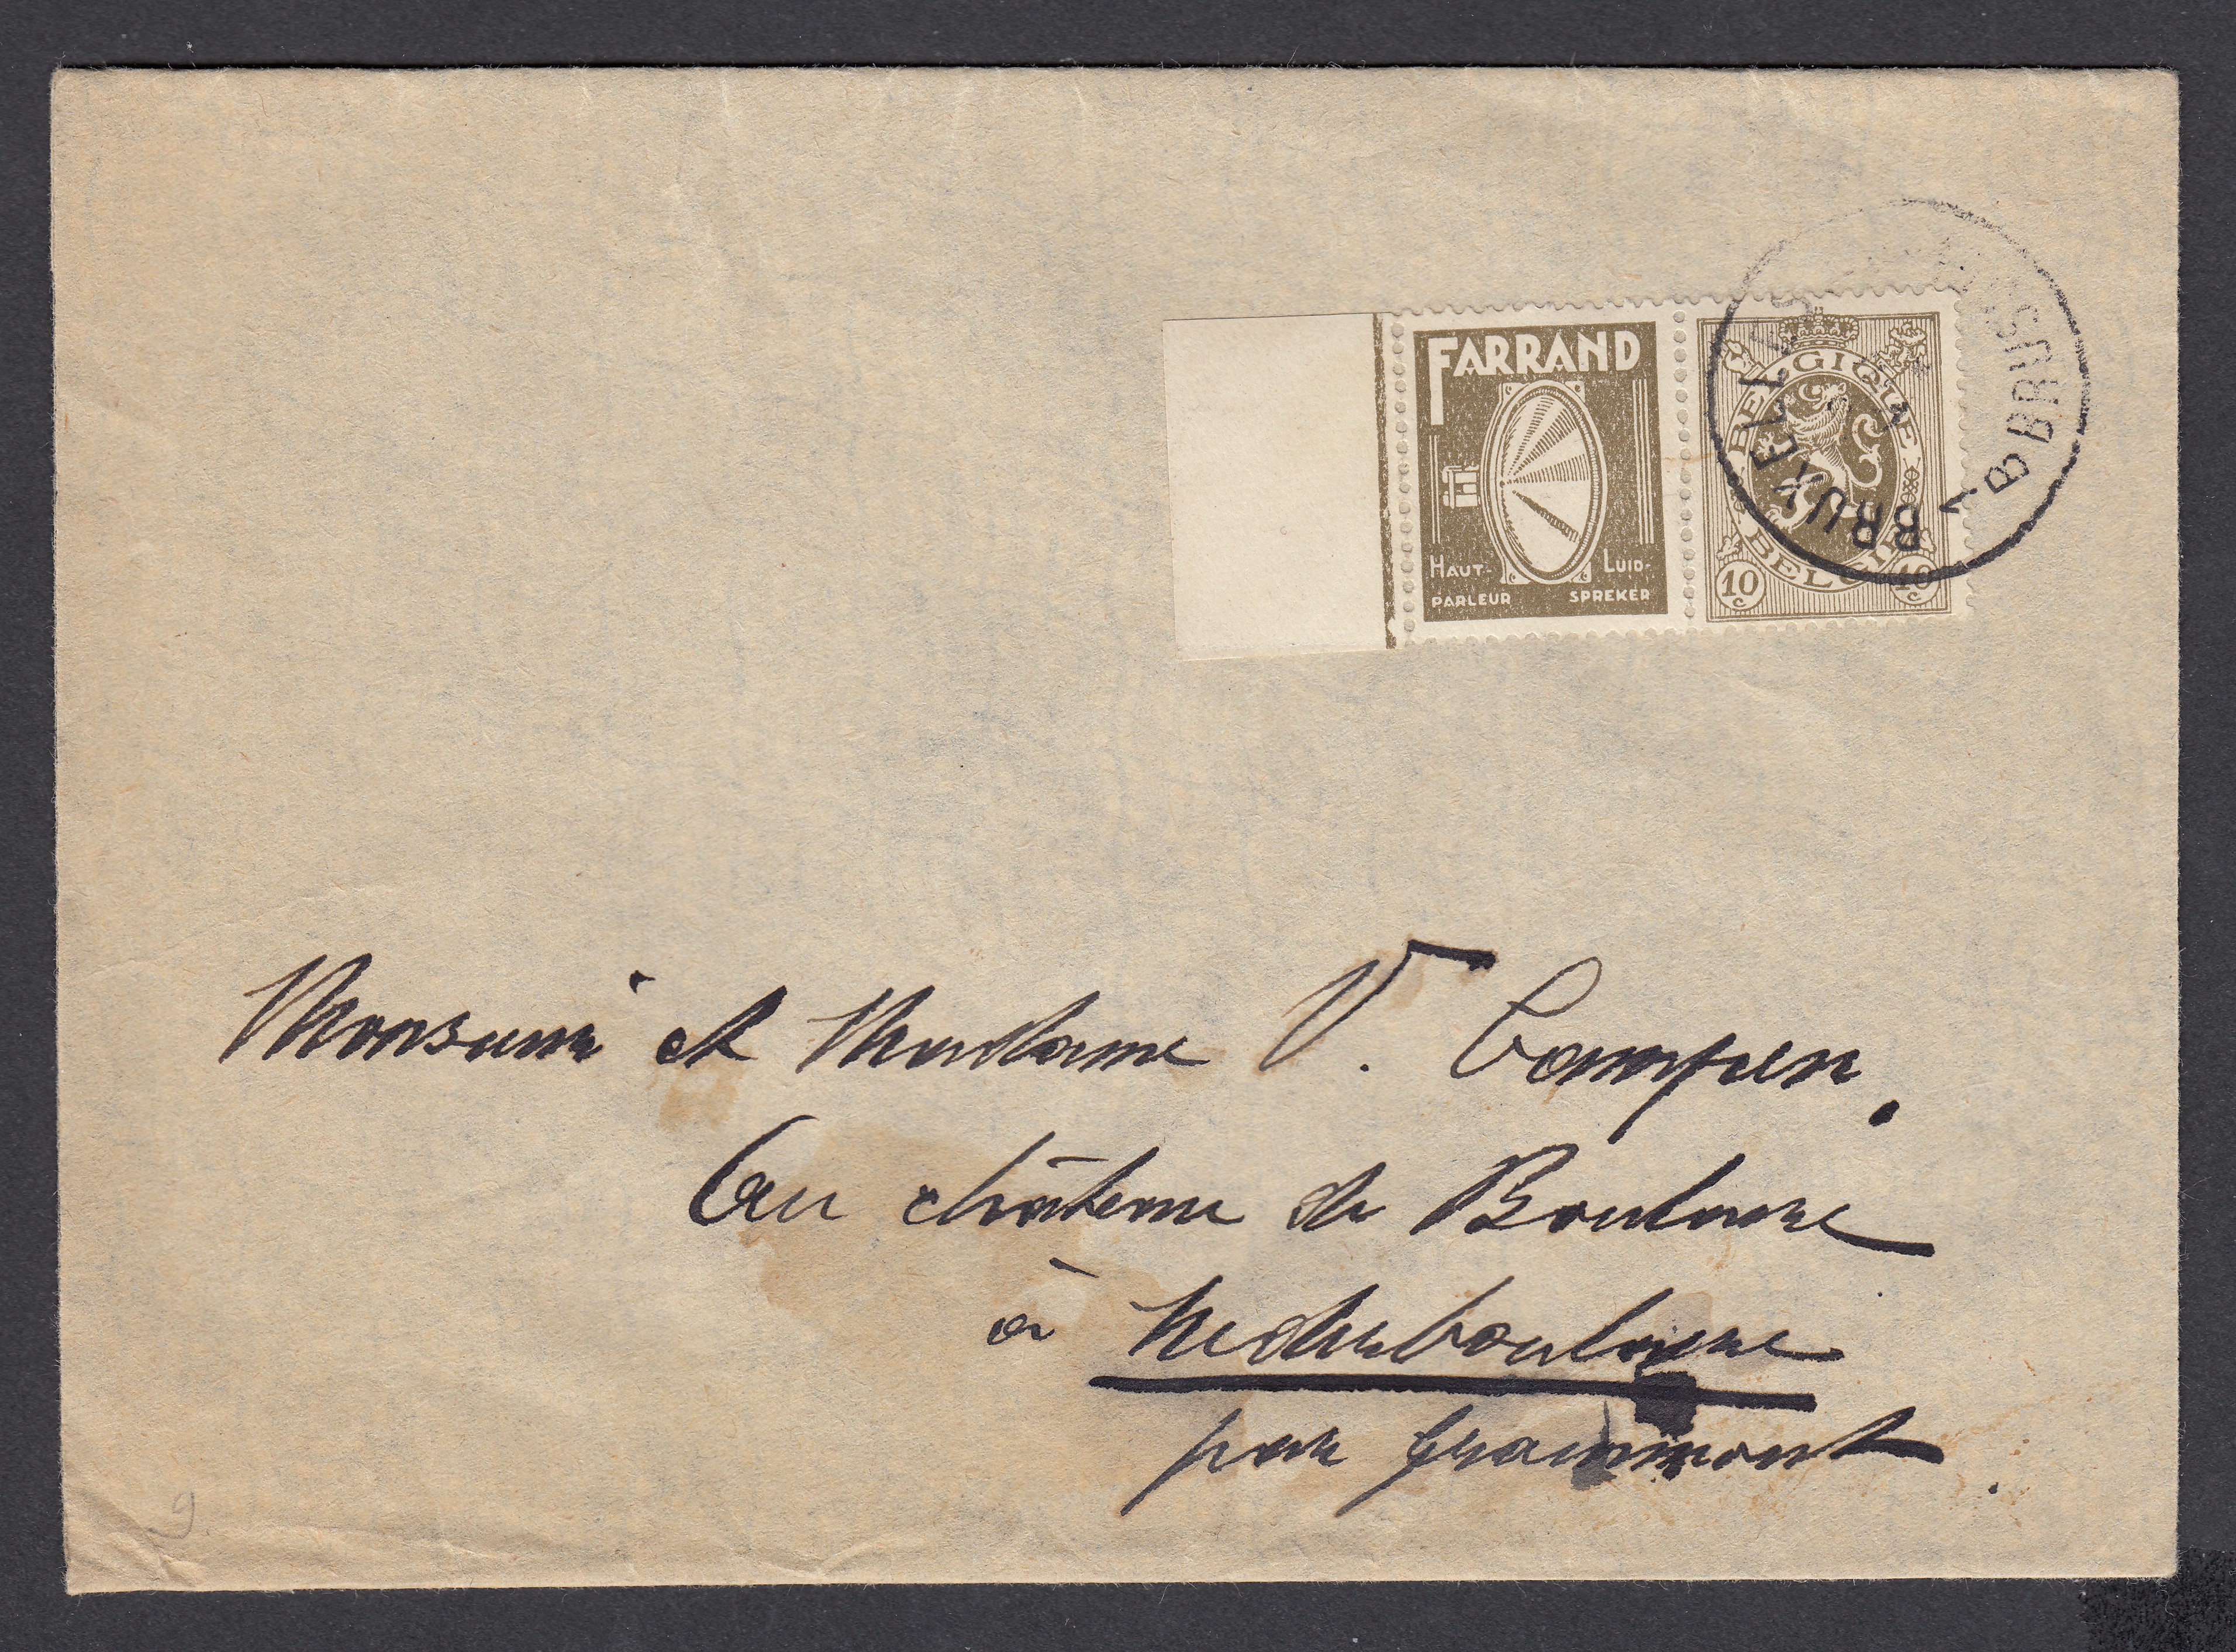 FARRAND
HAUT-
PARLEUR
LUID-
SPREKER
BELGIQUE
BELGIË
10 c
10 c
BRUXELLES
BRUSSEL
B
Monsieur et Madame V.
Au château de Boulaere
à Nederboulaere
par Grammont
9